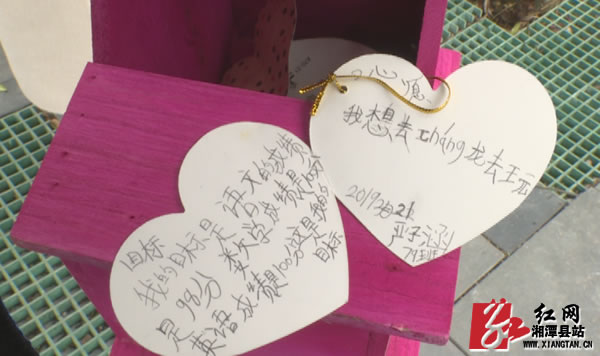 目标
我的目标是语文的成绩
是98分 数学成绩是100分
英语成绩是100分这是我的
目标
心愿
我想去cháng龙去王元
2019
严子涵
红网
湘潭县站
WWW.XIANGTAN.CN